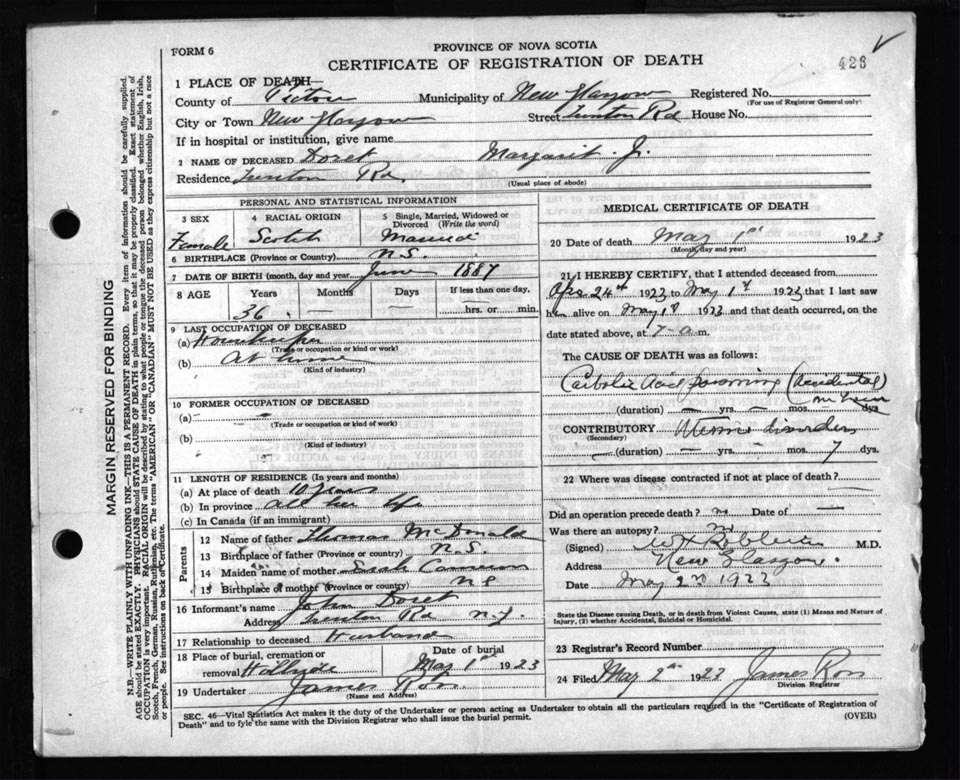 FORM 6
PROVINCE OF NOVA SCOTIA
CERTIFICATE OF REGISTRATION OF DEATH
426
1 PLACE OF DEATH—
County of Pictou Municipality of New Glasgow Registered No.
(For use of Registrar General only)
City or Town New Glasgow Street Rd House No.
If in hospital or institution, give name
2 NAME OF DECEASED Doret Margarit. J.
Residence Rd.
(Usual place of abode)
PERSONAL AND STATISTICAL INFORMATION
3 SEX
Female
4 RACIAL ORIGIN
Scotch
5 Single, Married, Widowed or Divorced (Write the word)
Married
6 BIRTHPLACE (Province or Country) N.S.
7 DATE OF BIRTH (month, day and year) June 1887
8 AGE Years Months Days If less than one day,
36 — — — hrs. or — min.
9 LAST OCCUPATION OF DECEASED
(a) Housekeeper
(Trade or occupation or kind of work)
(b) At home
(Kind of industry)
10 FORMER OCCUPATION OF DECEASED
(a) -
(Trade or occupation or kind of work)
(b)
(Kind of industry)
11 LENGTH OF RESIDENCE (In years and months)
(a) At place of death 10 years
(b) In province all her life
(c) In Canada (if an immigrant)
Parents
12 Name of father Thomas McDonald
13 Birthplace of father (Province or country) N.S.
14 Maiden name of mother Sarah Cameron
15 Birthplace of mother (Province or country) N S
16 Informant's name John Doret
Address Rd
17 Relationship to deceased Husband
18 Place of burial, cremation or removal
Date of burial
May 1st 1923
19 Undertaker James
(Name and Address)
MEDICAL CERTIFICATE OF DEATH
20 Date of death May 1st 1923
(Month, day and year)
21 I HEREBY CERTIFY, that I attended deceased from
24th 1923 to May 1st 1923 that I last saw
her alive on May 1st 1923 and that death occurred, on the
date stated above, at 7 a.m.
The CAUSE OF DEATH was as follows:
Carbolic Acid poisoning (Accidental)
(duration) — yrs — mos. dys
CONTRIBUTORY Uterine disorders
(Secondary)
(duration) — yrs. — mos. 7 dys.
22 Where was disease contracted if not at place of death? —
Did an operation precede death? no Date of —
Was there an autopsy? no
(Signed) M.D.
Address New Glasgow.
Date May 2nd 1923
State the Disease causing Death, or in death from Violent Causes, state (1) Means and Nature of Injury, (2) whether Accidental, Suicidal or Homicidal.
23 Registrar's Record Number
24 Filed May 2nd 1923 James
Division Registrar
SEC. 46—Vital Statistics Act makes it the duty of the Undertaker or person acting as Undertaker to obtain all the particulars required in the "Certificate of Registration of
Death" and to fyle the same with the Division Registrar who shall issue the burial permit.
(OVER)
MARGIN RESERVED FOR BINDING
N.B.—WRITE PLAINLY WITH UNFADING INK—THIS IS A PERMANENT RECORD. Every item of information should be carefully supplied.
AGE should be stated EXACTLY. PHYSICIANS should STATE CAUSE OF DEATH in plain terms, so that it may be properly classified. Exact statement of
OCCUPATION is very important. RACIAL ORIGIN will be described by stating to what people or tongue the deceased person belonged whether English, Irish,
Scotch, French, German, Russian, Ruthenian, etc. The terms "AMERICAN" or "CANADIAN" MUST NOT BE USED as they express citizenship but not a race
or people. See instructions on back of Certificate.